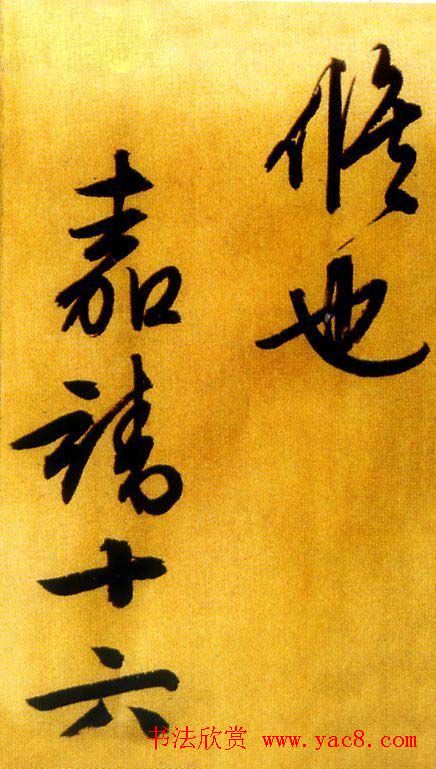 也
嘉靖十六
书法欣赏 www.yac8.com